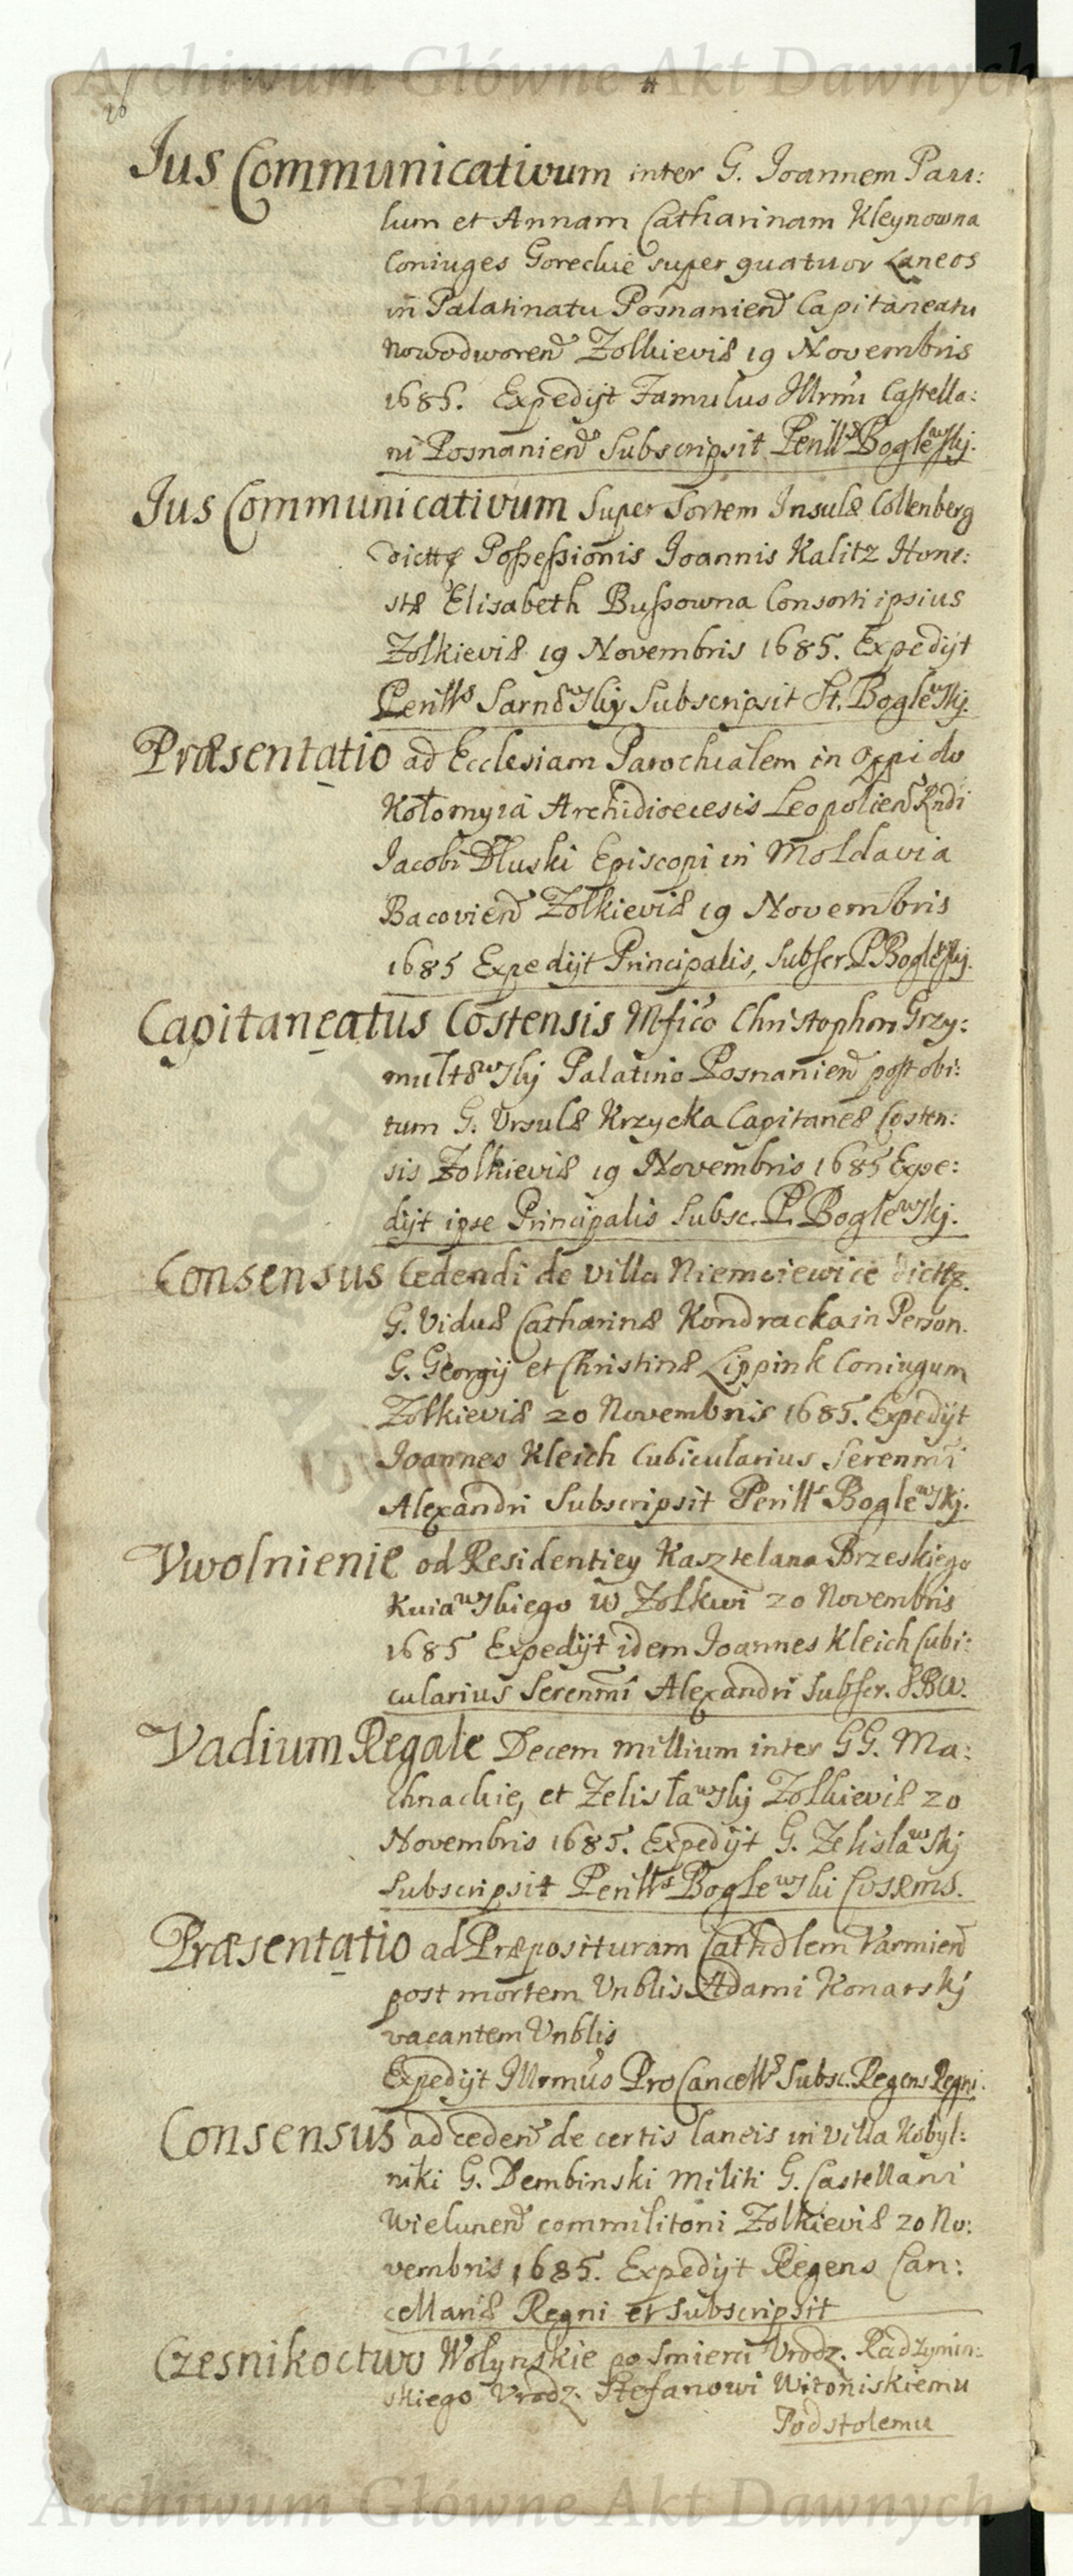 Archiwum Główne Akt Dawnych
Jus Communicativum inter G. Joannem Pau:
lum et Annam Catharinam Kleynowna
Coniuges Goreckie super quatuor Laneos
in Palatinatu Posnanien Capitaneatu
Nowodworen Zolkieviæ 19 Novembris
1685. Expedijt Famulus Illrmi Castella:
ni Posnanien Subscripsit Perills Boglewskj.
Jus Communicativum Super Sortem Insulæ Collenberg
dictæ Possessionis Joannis Kalitz Hone:
stæ Elisabeth Bussowna Consorti ipsius
Zolkieviæ 19 Novembris 1685. Expedijt
Perills Subscripsit St. Boglewskj.
Præsentatio ad Ecclesiam Parochialem in Oppido
Kołomyia Archidioecesis Leopolien Rndi
Jacobi Dluski Episcopi in Moldavia
Bacovien Zolkieviæ 19 Novembris
1685 Expedijt Principalis, Subscr. P Boglewskj.
Capitaneatus Costensis Mfico Christophori Grzy:
multowskj Palatino Posnanien post obi:
tum G. Ursulæ Krzycka Capitaneæ Costen:
sis Zolkieviæ 19 Novembris 1685 Expe:
dijt ipse Principalis Subsc. P. Boglewskj.
Consensus Cedendi de villa Niemoiewice dictæ
G. Viduæ Catharinæ Kondracka in Person.
G. Georgij et Christinæ Lippink Coniugum
Zolkieviæ 20 Novembris 1685. Expedijt
Joannes Kleich Cubicularius Serenmi
Alexandri Subscripsit Perills Boglewskj.
Vwolnienie od Residentiey Kasztelana Brzeskiego
Kuiawskiego w Zolkwi 20 Novembris
1685 Expedijt idem Joannes Kleich Cubi:
cularius Serenmi Alexandri Subscr. SBW.
Vadium Regale Decem millium inter GG. Ma:
chnackie, et Zelisławskj Zolkieviæ 20
Novembris 1685. Expedijt G. Zelislawskj
Subscripsit Perills Boglewski
Præsentatio ad Præposituram Cathdlem Varmien
post mortem Vnblis Adami Konarskj
vacantem Vnblis
Expedijt Illrmus ProCancells Subsc. Regens Regni.
Consensus ad ceden de certis laneis in villa Kobyl:
niki G. Dembinski Militi G. Castellani
Wielunen commilitoni Zolkieviæ 20 No:
vembris 1685. Expedijt Regens Can:
cellariæ Regni et Subscripsit
Czesnikoctwo Wolynskie po smierci Vrodz. Radzymin:
skiego Vrodz. Stefanowi Witoniskiemu
Podstolemu
Archiwum Główne Akt Dawnych